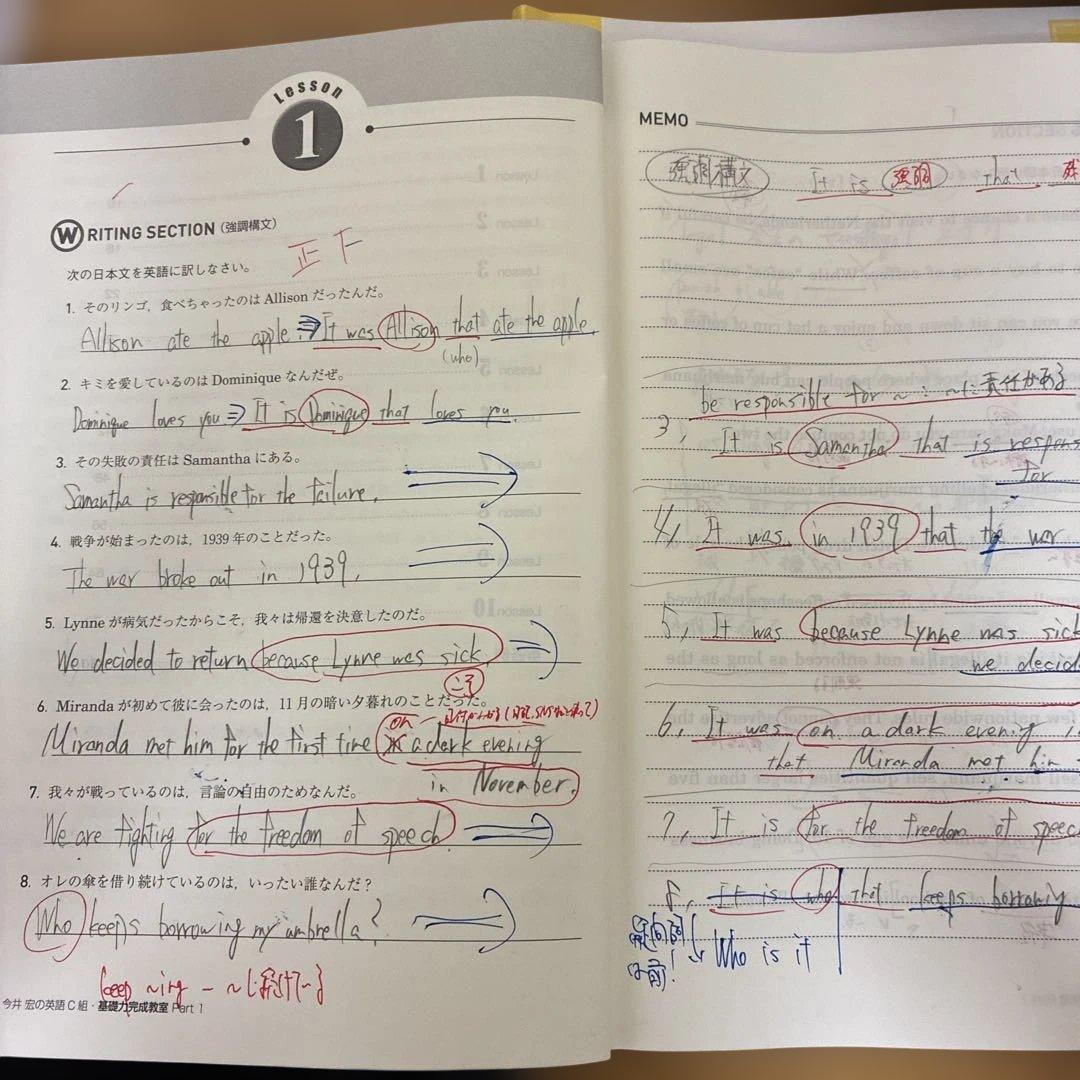 Lesson
1
WRITING SECTION (強調構文)
正下
次の日本文を英語に訳しなさい。
1. そのリンゴ，食べちゃったのは Allison だったんだ。
Allison ate the apple. ⇒ It was Allison that ate the apple.
(who)
2. キミを愛しているのは Dominique なんだぜ。
Dominique loves you ⇒ It is Dominique that loves you.
3. その失敗の責任は Samantha にある。
Samantha is responsible for the failure.
4. 戦争が始まったのは，1939 年のことだった。
The war broke out in 1939.
5. Lynne が病気だったからこそ，我々は帰還を決意したのだ。
We decided to return because Lynne was sick.
こそ
6. Miranda が初めて彼に会ったのは，11 月の暗い夕暮れのことだった。
on
Miranda met him for the first time a dark evening
in November.
7. 我々が戦っているのは，言論の自由のためなんだ。
We are fighting for the freedom of speech.
8. オレの傘を借り続けているのは，いったい誰なんだ？
Who keeps borrowing my umbrella?
keep ~ing - ~し続ける
今井 宏の英語 C 組・基礎力完成教室 Part 1
MEMO
強調構文 It is 強調 that 残
be responsible for ~ : ~に責任がある
3, It is Samantha that is respons
for
4, It was in 1939 that the war
5, It was because Lynne was sick
we decid
6, It was on a dark evening
that Miranda met him
7, It is for the freedom of speec
8, It is who that keeps borrowing
疑問詞
は前! Who is it